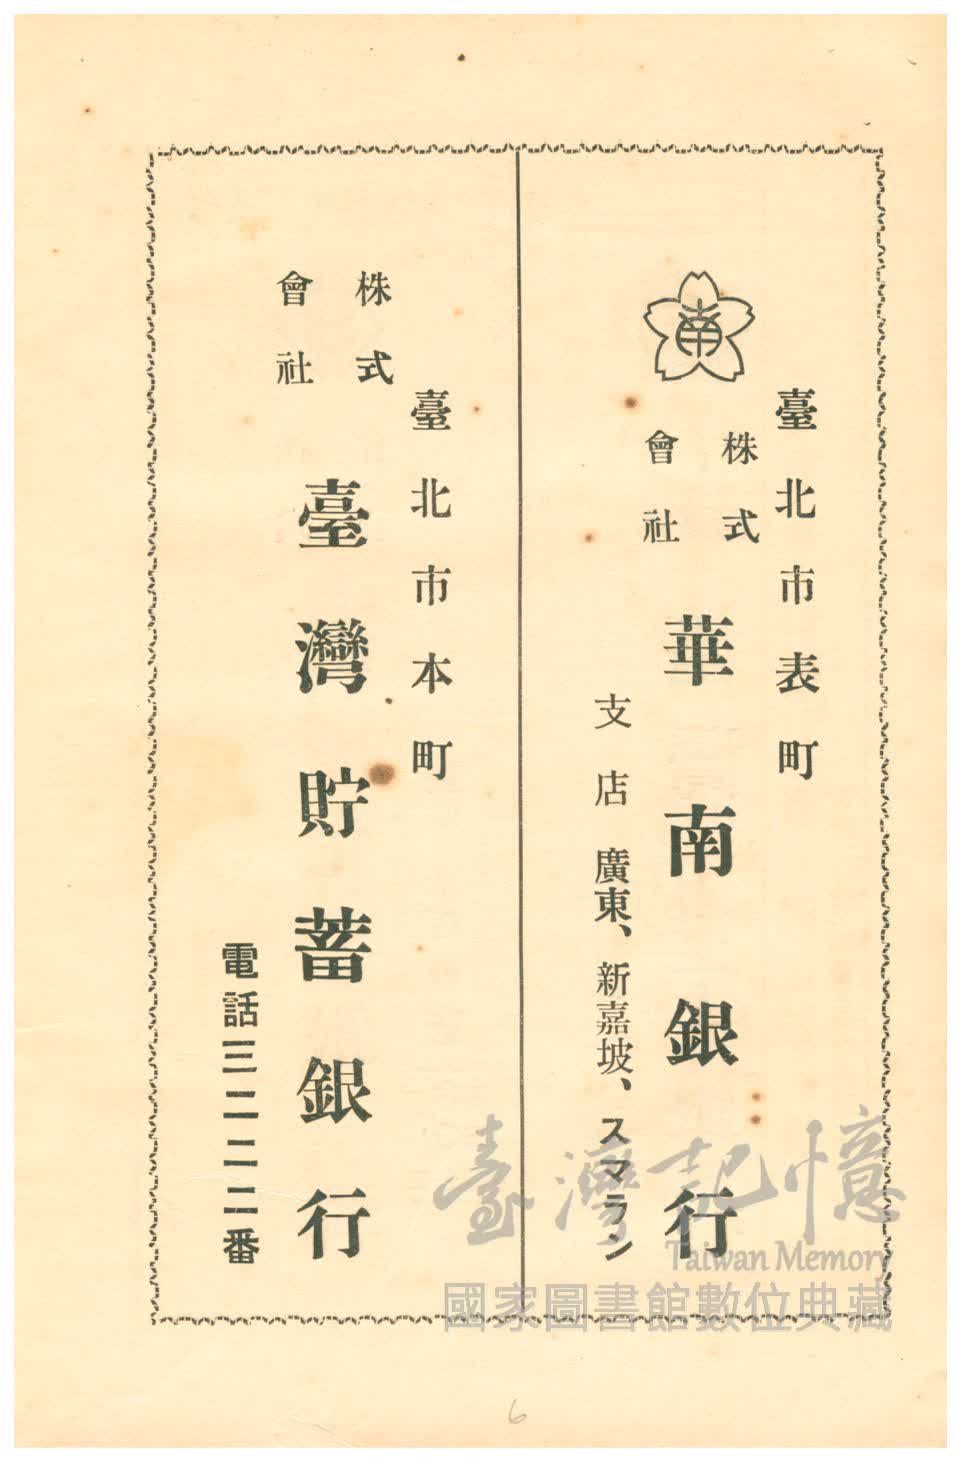 臺北市表町
南
株式
會社
華南銀行
支店 廣東、新嘉坡、スマラン
臺北市本町
株式
會社
臺灣貯蓄銀行
電話三二二二番
臺灣記憶
Taiwan Memory
國家圖書館數位典藏
6